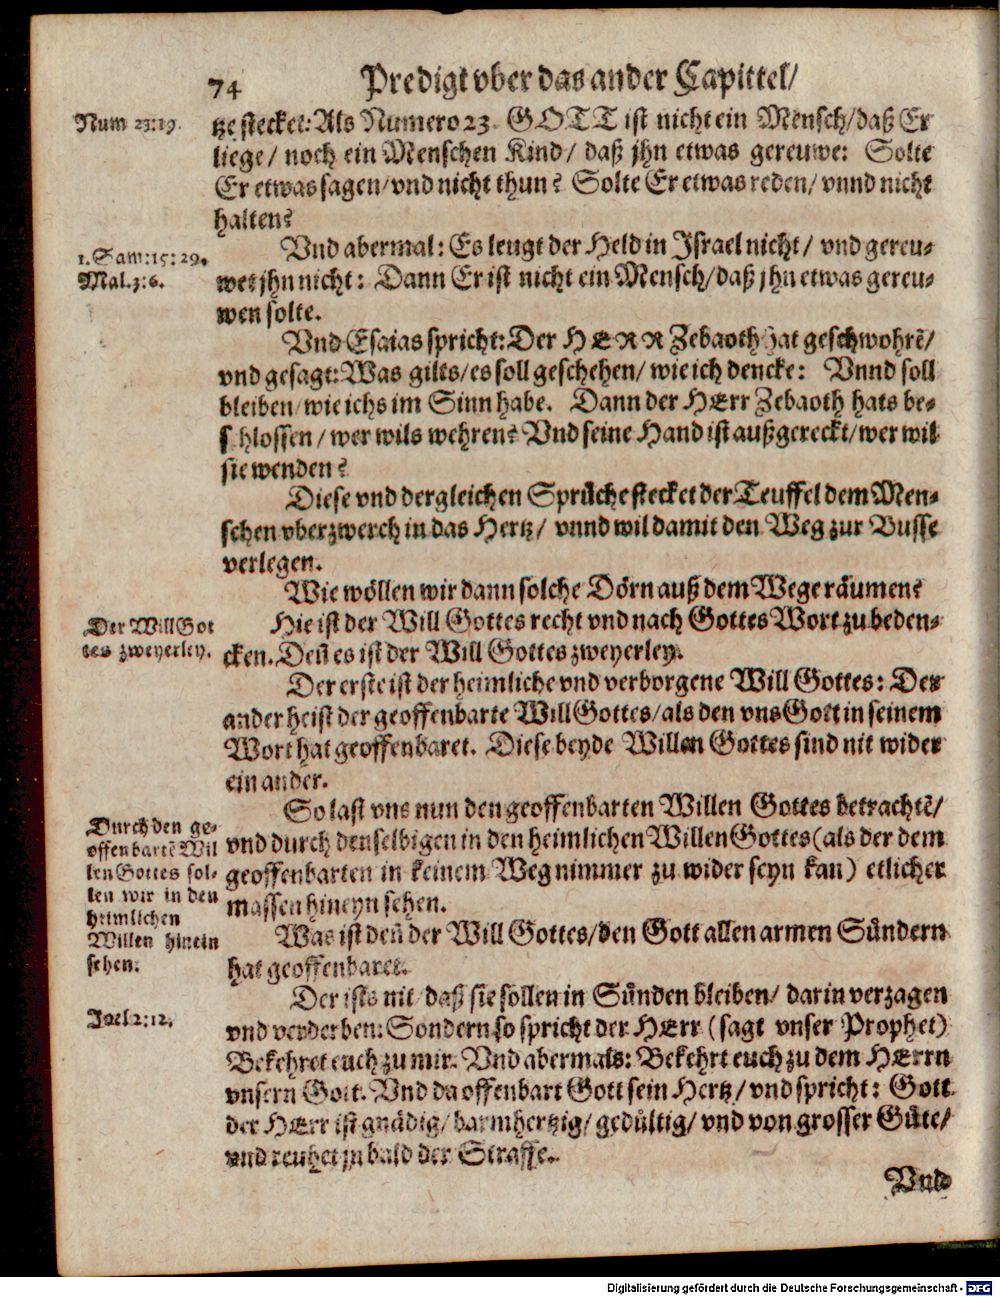 74 Predigt vber das ander Capittel/
Num 23:19.
tze stecket: Als Numero 23. GOTT ist nicht ein Mensch/ daß Er
liege/ noch ein Menschen Kind/ daß jhn etwas gereuwe: Solte
Er etwas sagen/ vnd nicht thun? Solte Er etwas reden/ vnnd nicht
halten?
1. Sam: 15: 29.
Mal. 3: 6.
Vnd abermal: Es leugt der Held in Israel nicht/ vnd gereu-
wet jhn nicht: Dann Er ist nicht ein Mensch/ daß jhn etwas gereu-
wen solte.
Vnd Esaias spricht: Der HERR Zebaoth hat geschwohrē/
vnd gesagt: Was gilts/ es soll geschehen/ wie ich dencke: Vnnd soll
bleiben/ wie ichs im Sinn habe. Dann der HErr Zebaoth hats be-
schlossen/ wer wils wehren? Vnd seine Hand ist außgereckt/ wer wil
sie wenden?
Diese vnd dergleichen Sprüche stecket der Teuffel dem Men-
schen vberzwerch in das Hertz/ vnnd wil damit den Weg zur Busse
verlegen.
Wie wöllen wir dann solche Dörn auß dem Wege räumen?
Der Will Got
tes zweyerley.
Hie ist der Will Gottes recht vnd nach Gottes Wort zu beden-
cken. Deñ es ist der Will Gottes zweyerley.
Der erste ist der heimliche vnd verborgene Will Gottes: Der
ander heist der geoffenbarte Will Gottes/ als den vns Gott in seinem
Wort hat geoffenbaret. Diese beyde Willen Gottes sind nit wider
ein ander.
Durch den ge-
offenbartē Wil
len Gottes sol-
len wir in den
heimlichen
Willen hinein
sehen.
So last vns nun den geoffenbarten Willen Gottes betrachtē/
vnd durch denselbigen in den heimlichen Willen Gottes (als der dem
geoffenbarten in keinem Weg nimmer zu wider seyn kan) etlicher
massen hineyn sehen.
Was ist deñ der Will Gottes/ den Gott allen armen Sündern
hat geoffenbaret.
Joel 2: 12.
Der ists nit/ daß sie sollen in Sünden bleiben/ darin verzagen
vnd verderben: Sondern so spricht der HErr (sagt vnser Prophet)
Bekehret euch zu mir. Vnd abermals: Bekehrt euch zu dem HErrn
vnsern Gott. Vnd da offenbart Gott sein Hertz/ vnd spricht: Gott
der HErr ist gnädig/ barmhertzig/ gedültig/ vnd von grosser Güte/
vnd reuhet jn bald der Straffe.
Vnd
Digitalisierung gefördert durch die Deutsche Forschungsgemeinschaft - DFG